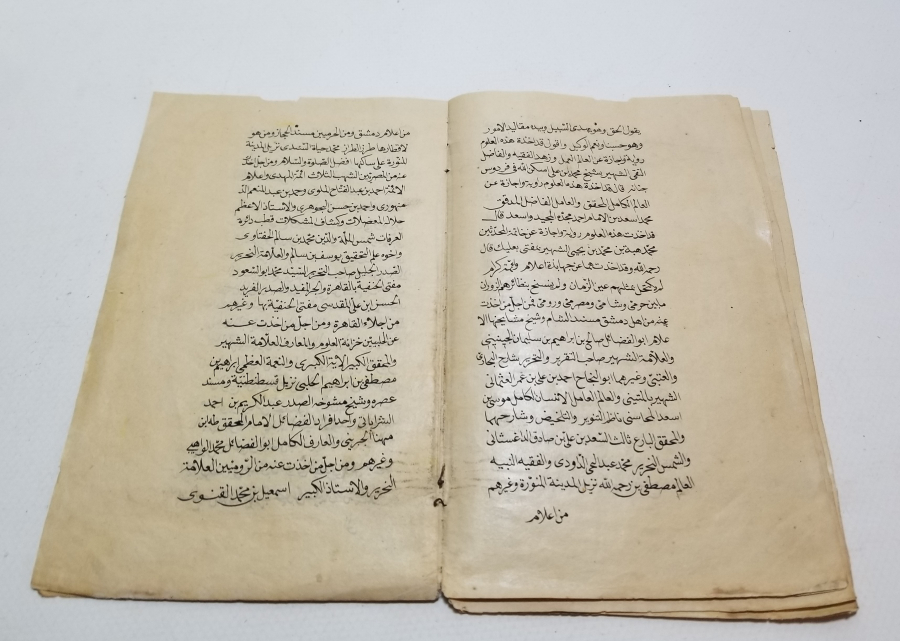 يقول الحق وهو يهدى السبيل وبيده مقاليد الامور
وهو حسبنا ونعم الوكيل واقول قد اخذت هذه العلوم
رواية واجازة عن العالم العمل وزهد الفقيه والفاضل
التقى الشهير بشيخ محمد بن على اسكن الله فى فردوس
جنانه قال قد اخذت هذه العلوم رواية واجازة عن
العالم الكامل المحقق والعامل الفاضل المدقق
محمد اسعد بن الامام احمد مجده المجيد واسعد قال
قد اخذت هذه العلوم رواية واجازة عن خاتمة المحدثين
محمد هبة بن محمد بن يحيى الشهير بمفتى بعلبك قال
رحمه الله وقد اخذت عن جهابذة اعلام وائمة كرام
لم تكتحل بمثلهم عين الزمان ولم ينسخ بنظائرهم الدوران
ما بين حرمى وشامى ومصرى ورومى فمن اجل من اخذت
عنه من اهل دمشق مسند الشام وشيخ مشايخها الا
علام ابو الفضائل صالح بن ابراهيم بن سليمان الجينينى
والعلامة الشهير صاحب التقرير والتحرير شارح البخارى
والعتبى وغيرهما ابو النجاح احمد بن على بن عمر العثمانى
الشهير بالمنينى والعالم العامل الانسان الكامل موسى بن
اسعد المحاسنى ناظم التنوير والتلخيص وشارحهما
والمحقق البارع ثالث السعد بن على بن صادق الداغستانى
والشمس النحرير محمد عبد الحى الداودى والفقيه النبيه
العالم مصطفى بن رحمة الله نزيل المدينة المنورة وغيرهم
من اعلام
من اعلام دمشق ومن الحرميين مسند الحجاز ومن هو
لاقطارها طرز الطراز محمد حياة السندى نزيل المدينة
المنورة على ساكنها افضل الصلوة والسلام ومن اجل من اخذت
عنه من المصريين الشهب الثلاث ائمة المهدى واعلام
الائمة احمد بن عبد الفتاح الملوى واحمد بن عبد المنعم الد
منهورى واحمد بن حسن الجوهرى والاستاذ الاعظم
حلال المعضلات وكشاف المشكلات قطب دائرة
العرفان شمس الملة والدين محمد بن سالم الحفناوى
واخوه على التحقيق يوسف بن سالم والعلامة النحرير
الصدر الجليل صاحب التحرير السيد محمد ابو السعود
مفتى الحنفية بالقاهرة والحبر المفيد والصدر الفريد
الحسن بن على المقدسى مفتى الحنفية بها وغيرهم
من اجلاء القاهرة ومن اجل من اخذت عنه
عن الحلبيين خزانة العلوم والمعارف العلامة الشهير
والمحقق الكبير الاية الكبرى والنعمة العظمى ابراهيم بن
مصطفى بن ابراهيم الحلبى نزيل قسطنطنية ومسند
عصره وشيخ مشوخه الصدر عبد الكريم بن احمد
الشراباتى واحد افراد الفضائل الامام المحقق طه بن
مهنا الجبرينى والعارف الكامل ابو الفضائل محمد المواهبى
وغيرهم ومن اجل من اخذت عنه من الروميين العلامة
النحرير والاستاذ الكبير اسمعيل بن محمد القنوى